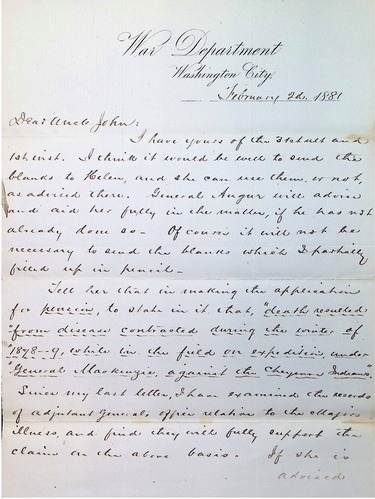 War Department
Washington City,
February 2d. 1881
Dear Uncle John:
I have yours of the 31st ult and
1st inst. I think it would be well to send the
blanks to Helen, and she can use them, or not,
as advised there. General Augur will advise
and aid her fully in the matter, if he has not
already done so- Of course it will not be
necessary to send the blanks which I partially
filled up in pencil-
Tell her that in making the application
for pension, to state in it that, "death resulted
"from disease contracted during the winter of
"1878-9, while in the field on expedition, under
"General Mackenzie, against the Cheyenne Indians"-
Since my last letter, I have examined the records
of adjutant generals office relation to the Majors
illness, and find they will fully support the
claim on the above basis. If she is
advised